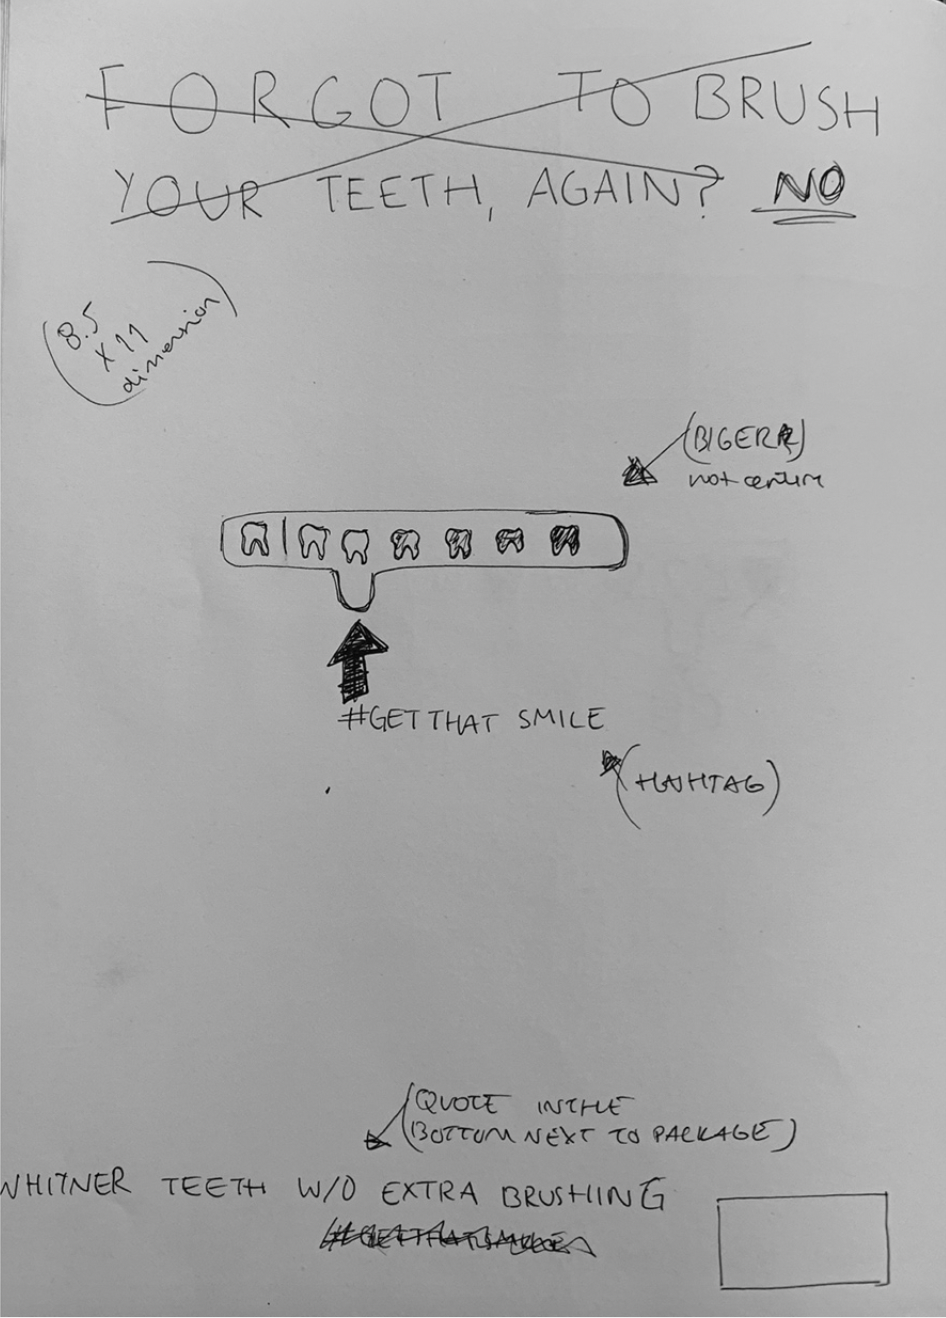 FORGOT TO BRUSH
YOUR TEETH, AGAIN? NO
(8.5
x 11
dimension)
(BIGER)
not centure
#GET THAT SMILE
(HASHTAG)
(QUOTE IN THE
(BOTTOM NEXT TO PACKAGE)
WHITNER TEETH W/O EXTRA BRUSHING
#GETTHATSMILE